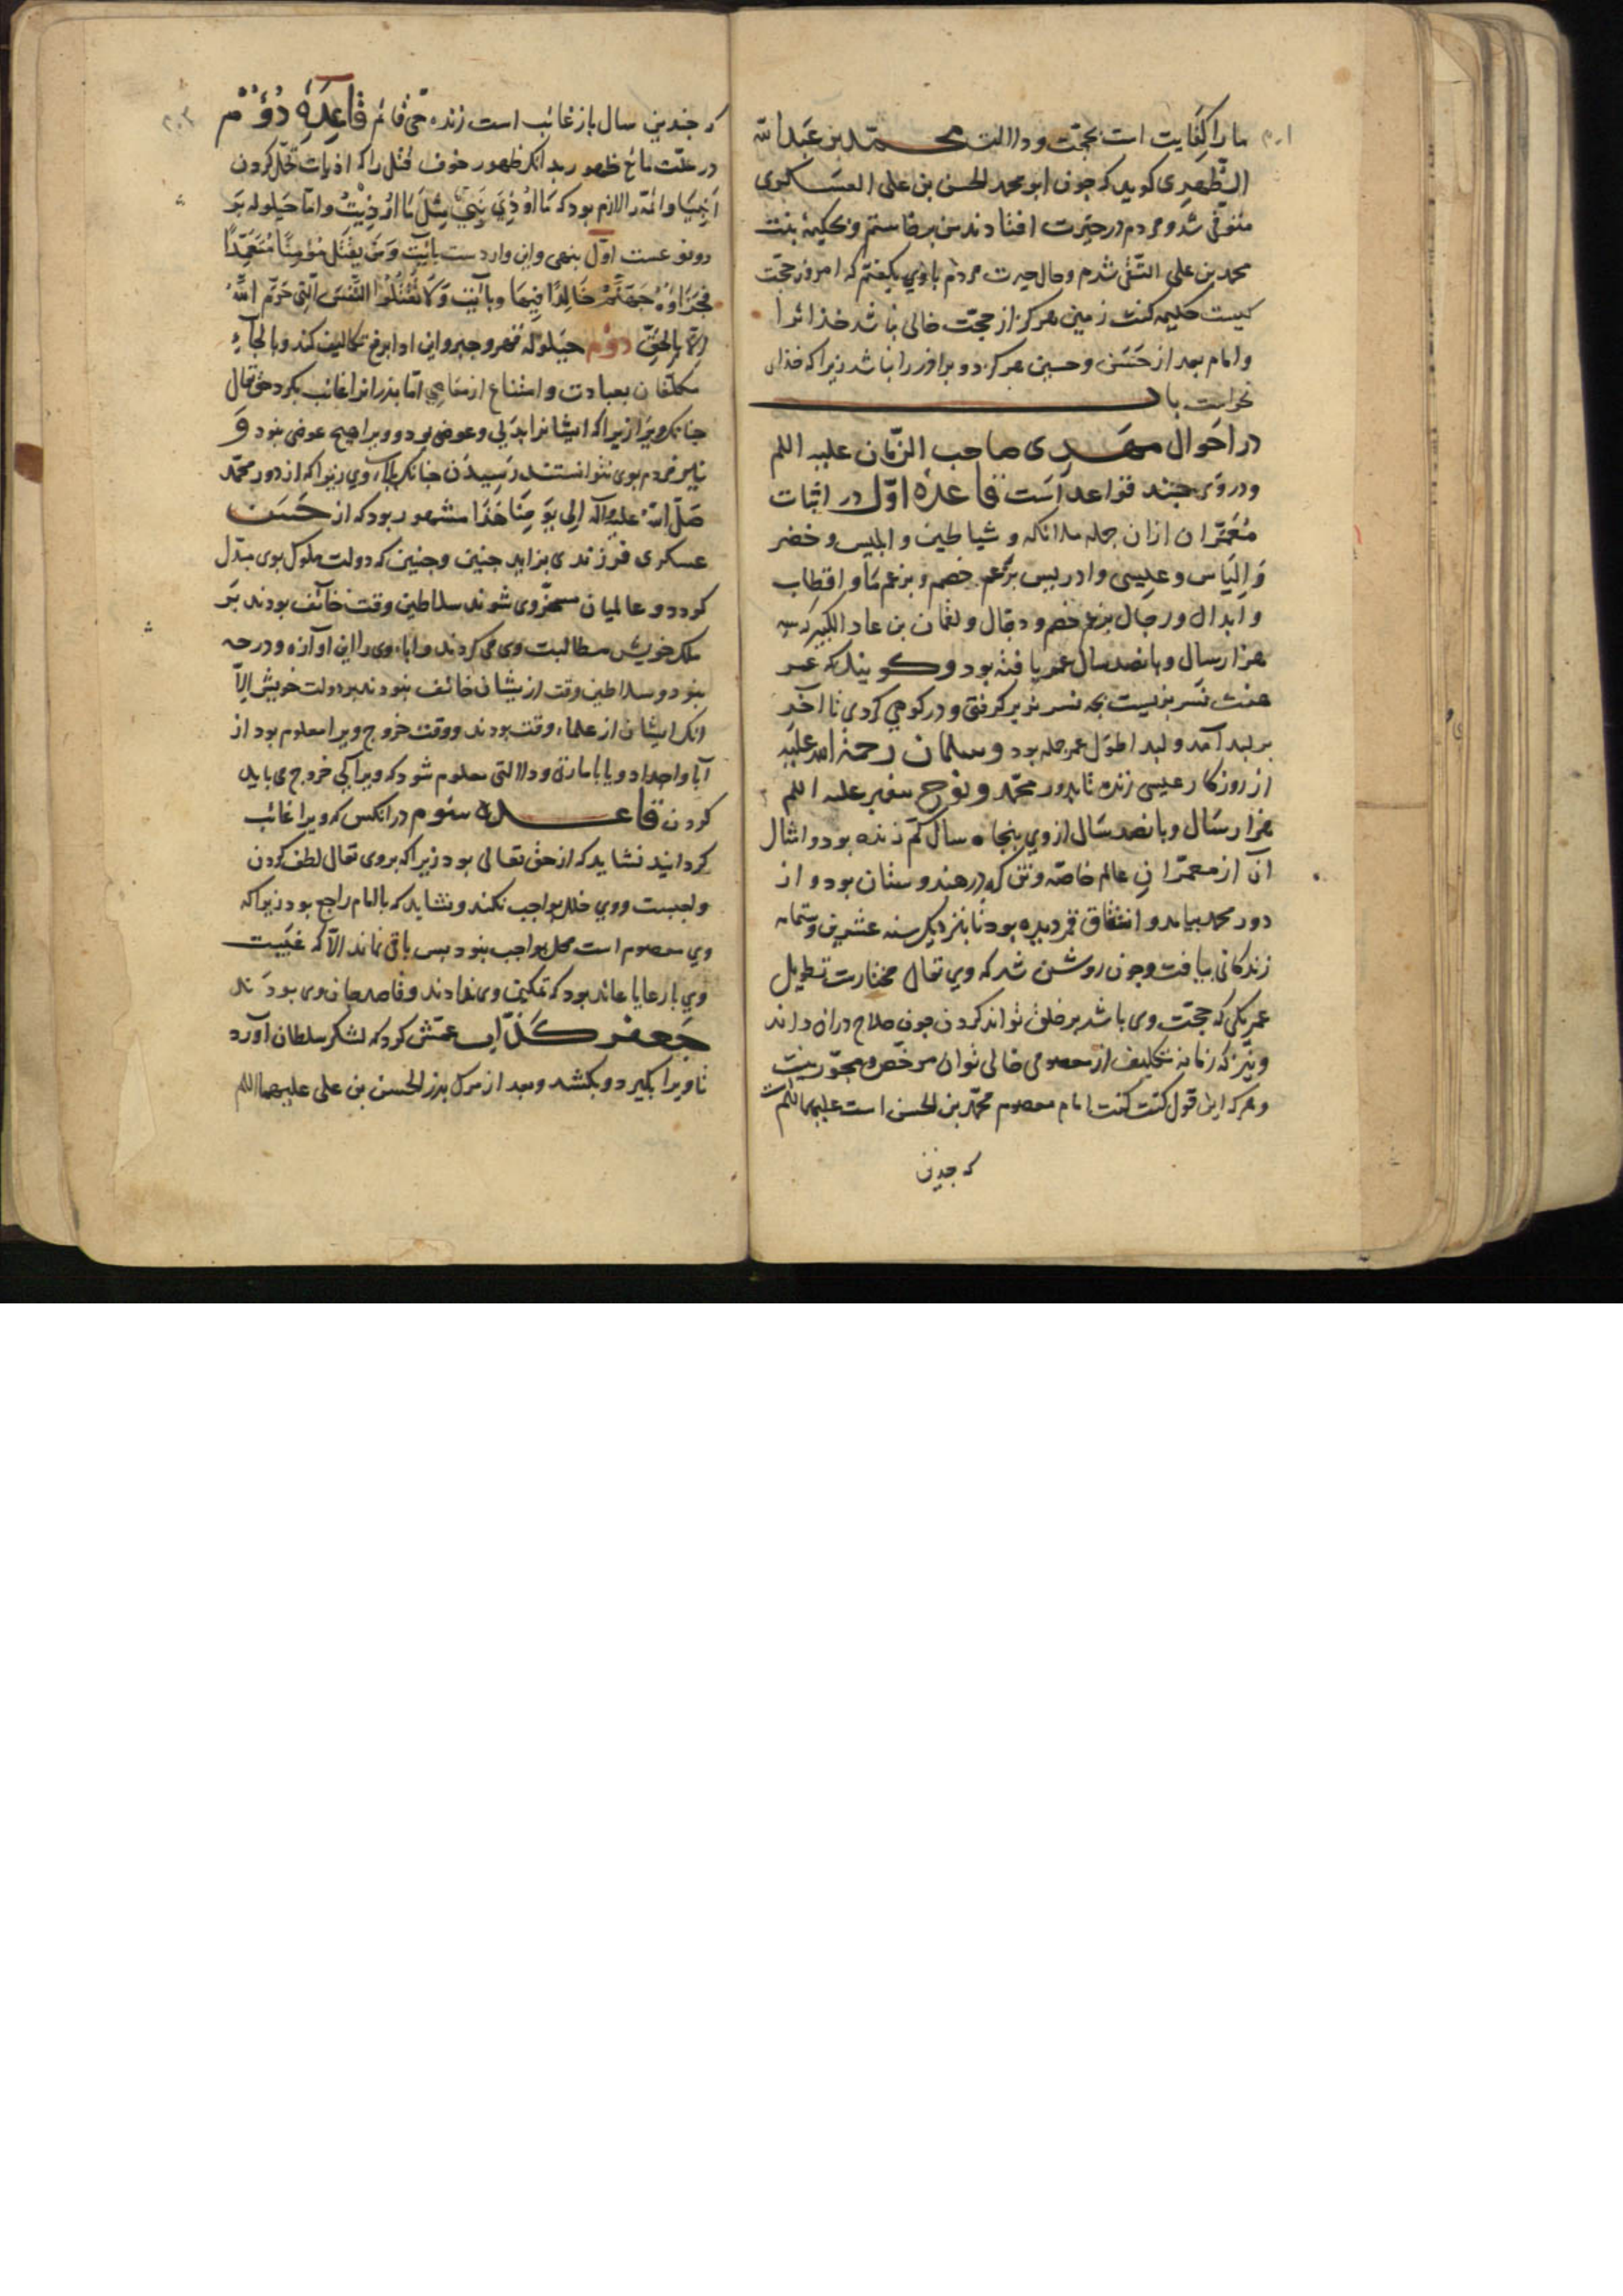 ما را کفایت است بحجت و دلالت محمد بن عبدالله
الطهری کوید که جون ابو محمد الحسن بن علی العسکری
متوفی شد و مردم در حیرت افتادند من برخاستم و بحکیمه بنت
محمد بن علی التقی شدم و حال حیرت مردم با وی بکفتم که امروز حجت
کیست حکیمه کفت زمین هرکز از حجت خالی نباشد خدائرا
و امام بعد از حسن و حسین هرکز دو برادر را نباشد زیرا که خدای
نخواست باب
در احوال مهدی صاحب الزمان علیه السلم
و در وی جند قواعد است قاعده اول در اثبات
معمران ازان جمله ملائکه و شیاطین و ابلیس و خضر
و الیاس و عیسی و ادریس بزعم خصم و بزعم ما و اقطاب
و ابدال و رجال بزعم خصم و دجال و لقمان بن عاد الکبیر که سه
هزار سال و بانصد سال عمر یافته بود و کویند که عمر
هفت نسر بزیست بجه نسر نر بر کرفتی و در کوهی کردی تا آخر
بر لبد آمد و لبد اطول عمر جمله بود و سلمان رحمة الله علیه
از روزکار عیسی زنده تا بدور محمد و نوح بیغمبر علیه السلم
هزار سال و بانصد سال از وی بنجاه سال کم زنده بود و امثال
آن از معمران عالم خاصه وتن که در هندوستان بود و از
دور محمد بیامد و انشقاق قمر دیده بود تا بنزدیک سنه عشرین و ستمایه
زندکانی بیافت و جون روشن شد که وی تعالی مختارست تطویل
عمر یکی که حجت وی باشد بر خلق تواند کردن جون صلاح دران داند
و نیز که زمانه تکلیف از معصومی خالی نتوان مرخص و مجوز نیست
و هرکه این قول کفت کفت امام معصوم محمد بن الحسن است علیهما السلم
که جندین
که جندین سال باز غائب است زنده حی قائم قاعده دوم
در علت مانع ظهور بدانکه ظهور خوف قتل را که اذیات تحمل کردن
انبیا و ائمه را لازم بود که ما اوذی نبی مثل ما اوذیت و اما حیلوله بر
دو نوعست اول بنهی و این واردست بآیت و من یقتل مؤمنا متعمدا
فجزاؤه جهنم خالدا فیها و بآیت و لا تقتلوا النفس التی حرم الله
الا بالحق دوم حیلوله قهر و جبر و این ادا برفع تکالیف کند و بالجآء
مکلفان بعبادت و امتناع از معاصی اما بدرانرا غائب نکرد حق تعالی
جنانک ویرا زیرا که ایشانرا بدلی و عوضی بود و ویرا هیچ عوضی نبود و
نیز مردم بوی نتوانستند رسیدن جنانک بآباء وی زیرا که از دور محمد
صلی الله علیه و آله الی یومنا هذا مشهور بود که از حسن
عسکری فرزندی بزاید جنین و جنین که دولت ملوک بوی مبدل
کردد و عالمیان مسخر وی شوند سلاطین وقت خائف بودند بر
ملک خویش مطالبت وی می کردند و آباء وی را این آوازه و درجه
نبود و سلاطین وقت ازیشان خائف نبودند بر دولت خویش الا
انک ایشان از علماء وقت بودند و وقت خروج ویرا معلوم بود از
آبا و اجداد و یا بامارتی و دلالتی معلوم شود که ویرا کی خروج می باید
کردن قاعده سئوم در انکس که ویرا غائب
کردانید نشاید که از حق تعالی بود زیرا که بر وی تعالی لطف کردن
واجبست و وی خلل بواجب نکند و نشاید که باامام راجع بود زیرا که
وی معصوم است مخل بواجب نبود بس باقی نماند الا که غیبت
وی با رعایا عائد بود که تمکین وی ندادند و قاصد جان وی بودند
جعفر کذاب عمش کرد که لشکر سلطان آورد
تا ویرا بکیرد و بکشد و بعد از مرک بدر الحسن بن علی علیهما السلم